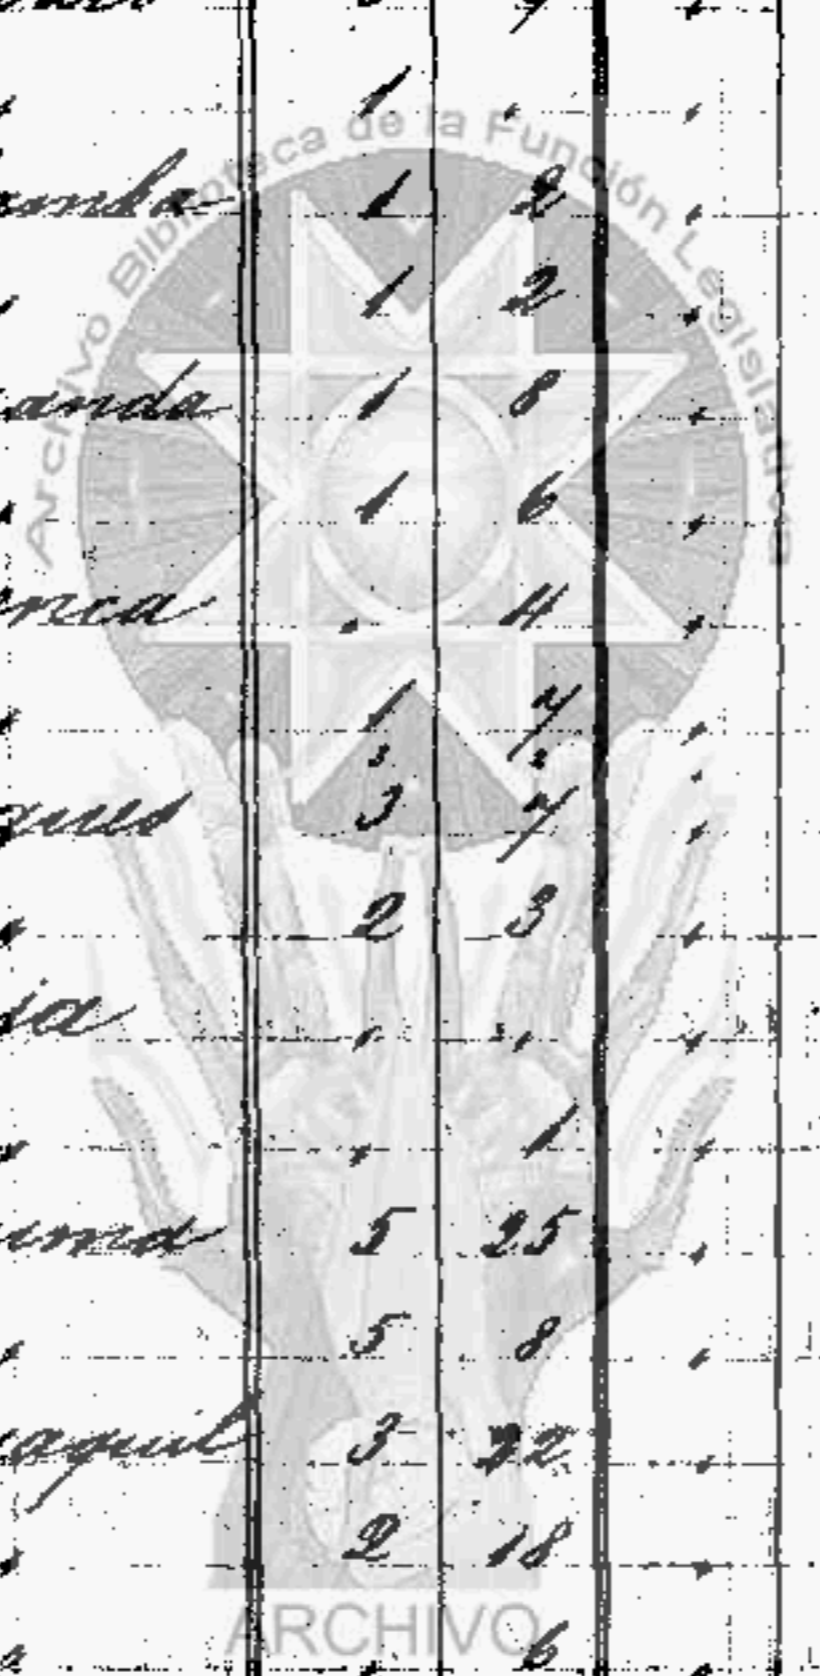 Archivo Biblioteca de la Función Legislativa
1
1 2
1 2
anda 1 8
1 6
enca 4
1 7
ques 3 7
2 3
1
5 25
5 8
aquil 3 22
2 18
6
ARCHIVO